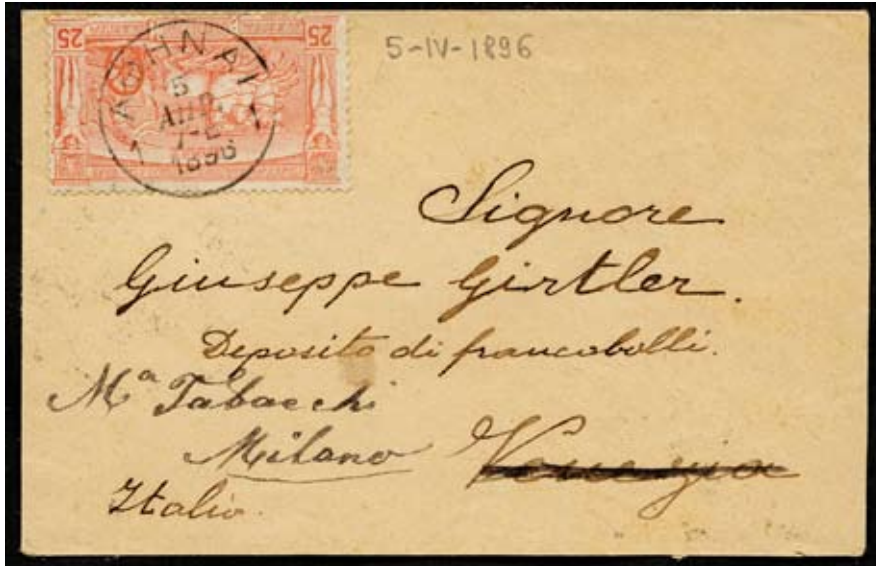 25 25
5-IV-1896
ΑΘΗΝΑΙ
5
ΑΠΡ.
1896
1 1
Signore
Giuseppe Girtler.
Deposito di francobolli.
Mª Tabacchi
Milano Venezia
Italia.